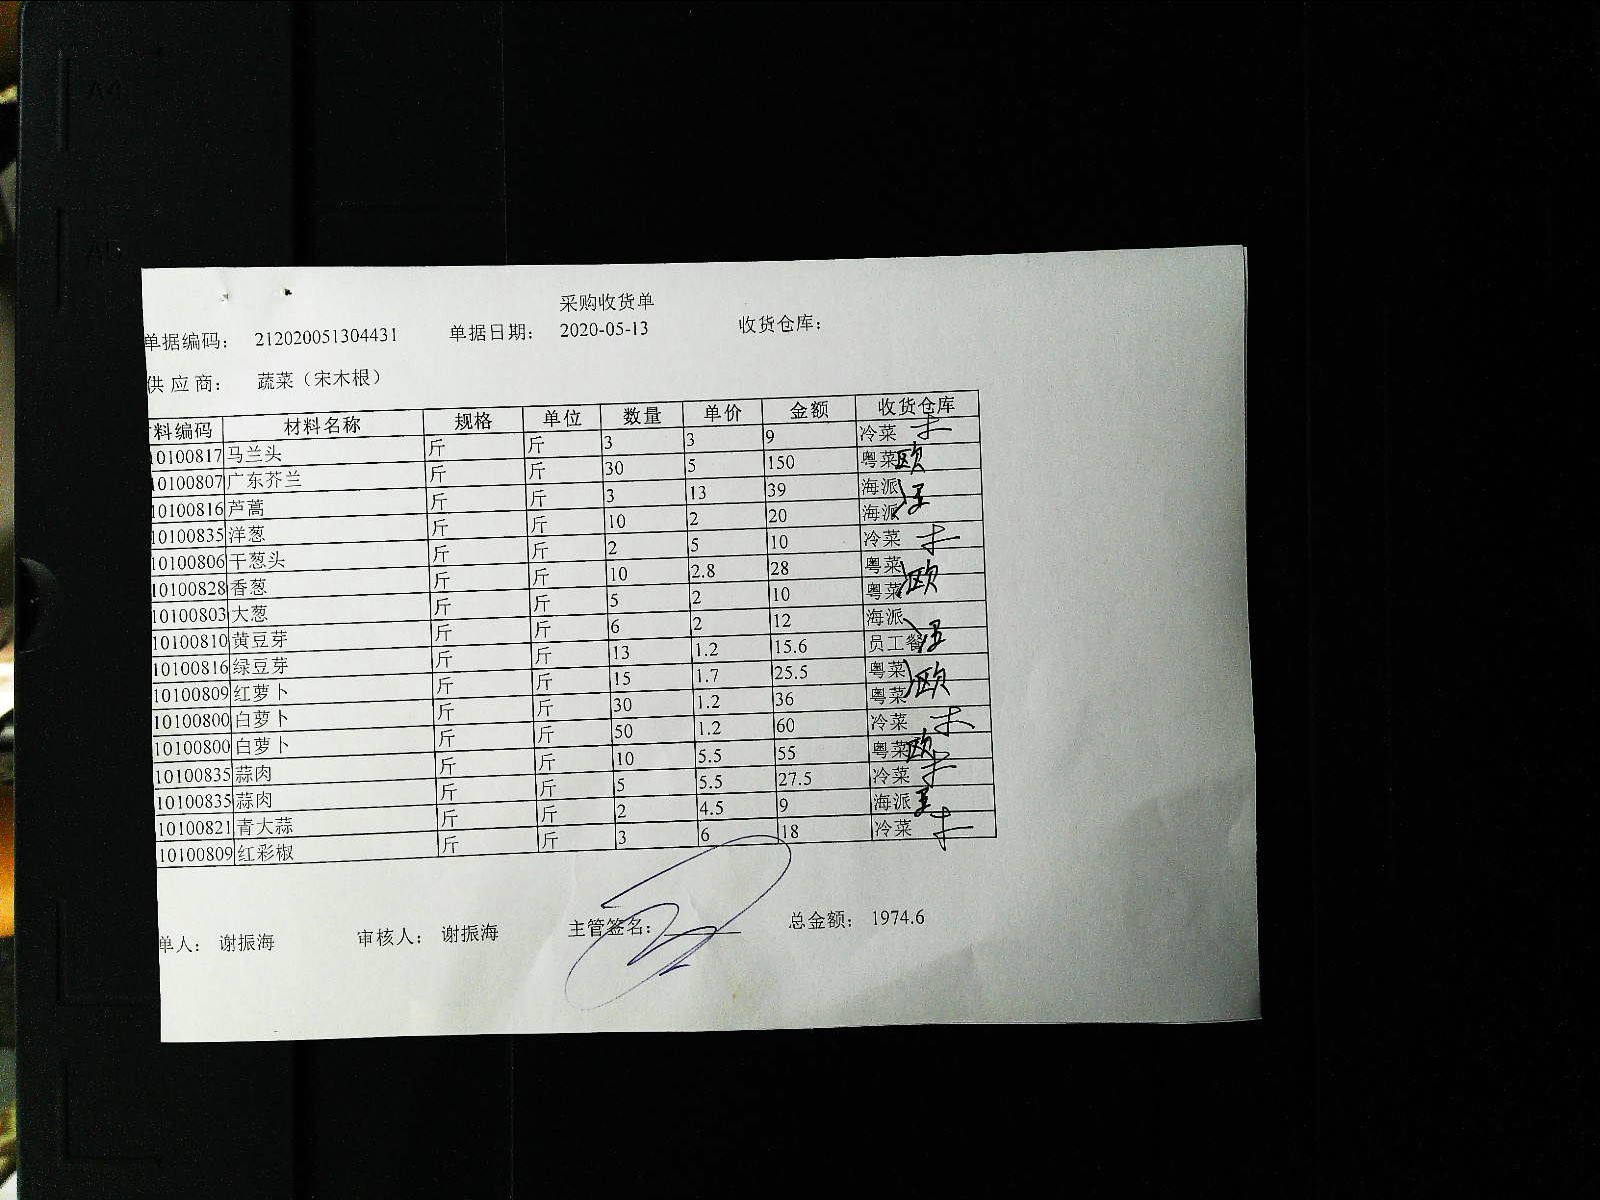 采购收货单
单据编码： 212020051304431 单据日期： 2020-05-13 收货仓库：
供应商： 蔬菜（宋木根）
料编码 材料名称 规格 单位 数量 单价 金额 收货仓库
10100817 马兰头 斤 斤 3 3 9 冷菜
10100807 广东芥兰 斤 斤 30 5 150 粤菜 欧
10100816 芦蒿 斤 斤 3 13 39 海派
10100835 洋葱 斤 斤 10 2 20 海派
10100806 干葱头 斤 斤 2 5 10 冷菜
10100828 香葱 斤 斤 10 2.8 28 粤菜
10100803 大葱 斤 斤 5 2 10 粤菜 欧
10100810 黄豆芽 斤 斤 6 2 12 海派
10100816 绿豆芽 斤 斤 13 1.2 15.6 员工餐
10100809 红萝卜 斤 斤 15 1.7 25.5 粤菜
10100800 白萝卜 斤 斤 30 1.2 36 粤菜 欧
10100800 白萝卜 斤 斤 50 1.2 60 冷菜
10100835 蒜肉 斤 斤 10 5.5 55 粤菜 欧
10100835 蒜肉 斤 斤 5 5.5 27.5 冷菜
10100821 青大蒜 斤 斤 2 4.5 9 海派
10100809 红彩椒 斤 斤 3 6 18 冷菜
单人： 谢振海 审核人： 谢振海 主管签名： 总金额： 1974.6